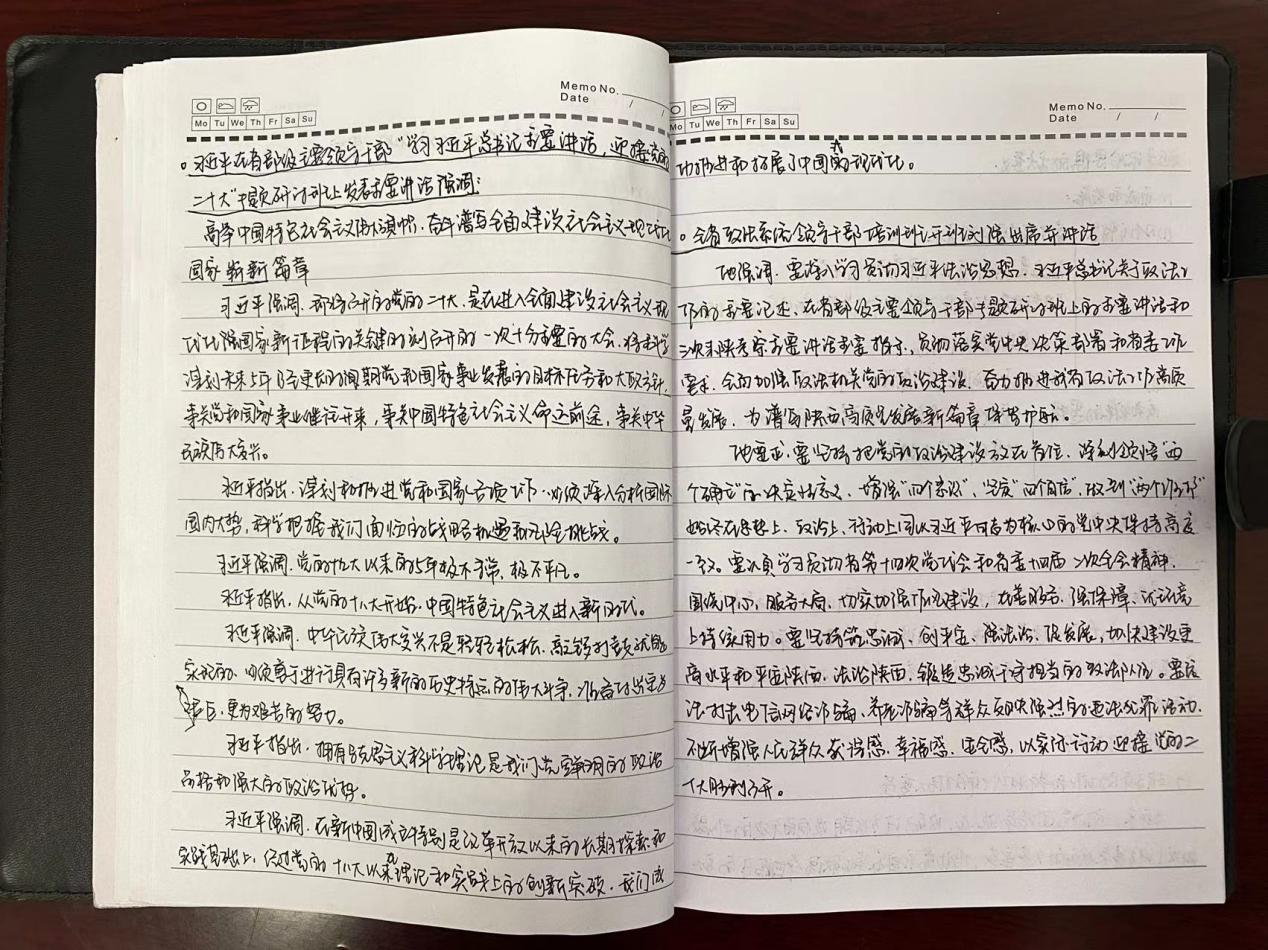 Memo No.
Date / /
Mo Tu We Th Fr Sa Su
。习近平在省部级主要领导干部“学习习近平总书记重要讲话，迎接党的
二十大”专题研讨班上发表重要讲话强调：
高举中国特色社会主义伟大旗帜，奋斗谱写全面建设社会主义现代化
国家崭新篇章
习近平强调，即将召开的党的二十大，是在进入全面建设社会主义现
代化强国家新征程的关键时刻召开的一次十分重要的大会，将科学
谋划未来5年乃至更长时期党和国家事业发展的目标任务和大政方针，
事关党和国家事业继往开来，事关中国特色社会主义命运前途，事关中华
民族伟大复兴。
习近平指出，谋划和推进党和国家各项工作，必须深入分析国际
国内大势，科学把握我们面临的战略机遇和风险挑战。
习近平强调，党的十九大以来的5年极不寻常、极不平凡。
习近平指出，从党的十八大开始，中国特色社会主义进入新时代。
习近平强调，中华民族伟大复兴不是轻轻松松、敲锣打鼓就能
实现的，必须勇于进行具有许多新的历史特点的伟大斗争，准备付出更为
艰巨、更为艰苦的努力。
习近平指出，拥有马克思主义科学理论是我们党鲜明的政治
品格和强大的政治优势。
习近平强调，在新中国成立特别是改革开放以来的长期探索和
实践基础上，经过党的十八大以来在理论和实践上的创新突破，我们成
Mo Tu We Th Fr Sa Su
Memo No.
Date / /
功推进和拓展了中国式现代化。
。全省政法系统领导干部培训班开班 强出席并讲话
他强调，要深入学习贯彻习近平法治思想、习近平总书记关于政法工
作的重要论述、在省部级主要领导干部专题研讨班上的重要讲话和
三次来陕考察重要讲话重要指示，贯彻落实党中央决策部署和省委工作
要求，全面加强政法机关党的政治建设，奋力推进我省政法工作高质
量发展，为谱写陕西高质量发展新篇章保驾护航。
他要求，要坚持把党的政治建设放在首位，深刻领悟“两
个确立”的决定性意义，增强“四个意识”、坚定“四个自信”、做到“两个维护”
始终在思想上、政治上、行动上同以习近平同志为核心的党中央保持高度
一致。要认真学习贯彻省第十四次党代会和省委十四届二次全会精神，
围绕中心、服务大局，切实加强作风建设，在善服务、强保障、优环境
上持续用力。要坚持铸忠诚、创平安、强法治、促发展，加快建设更
高水平和平安陕西、法治陕西，锻造忠诚干净担当的政法队伍。要依
法打击电信网络诈骗、养老诈骗等群众反映强烈的违法犯罪活动，
不断增强人民群众获得感、幸福感、安全感，以实际行动迎接党的二
十大胜利召开。